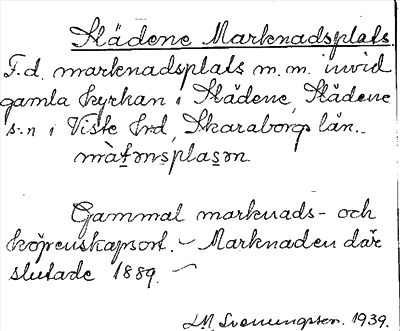 Slädene Marknadsplats.
F.d. marknadsplats m.m. invid
gamla kyrkan i Slädene, Slädene
s:n i Viste hrd, Skaraborgs län.
Gammal marknads- och
köpenskapsort. – Marknaden där
slutade 1889. –
Svenungsson. 1939.